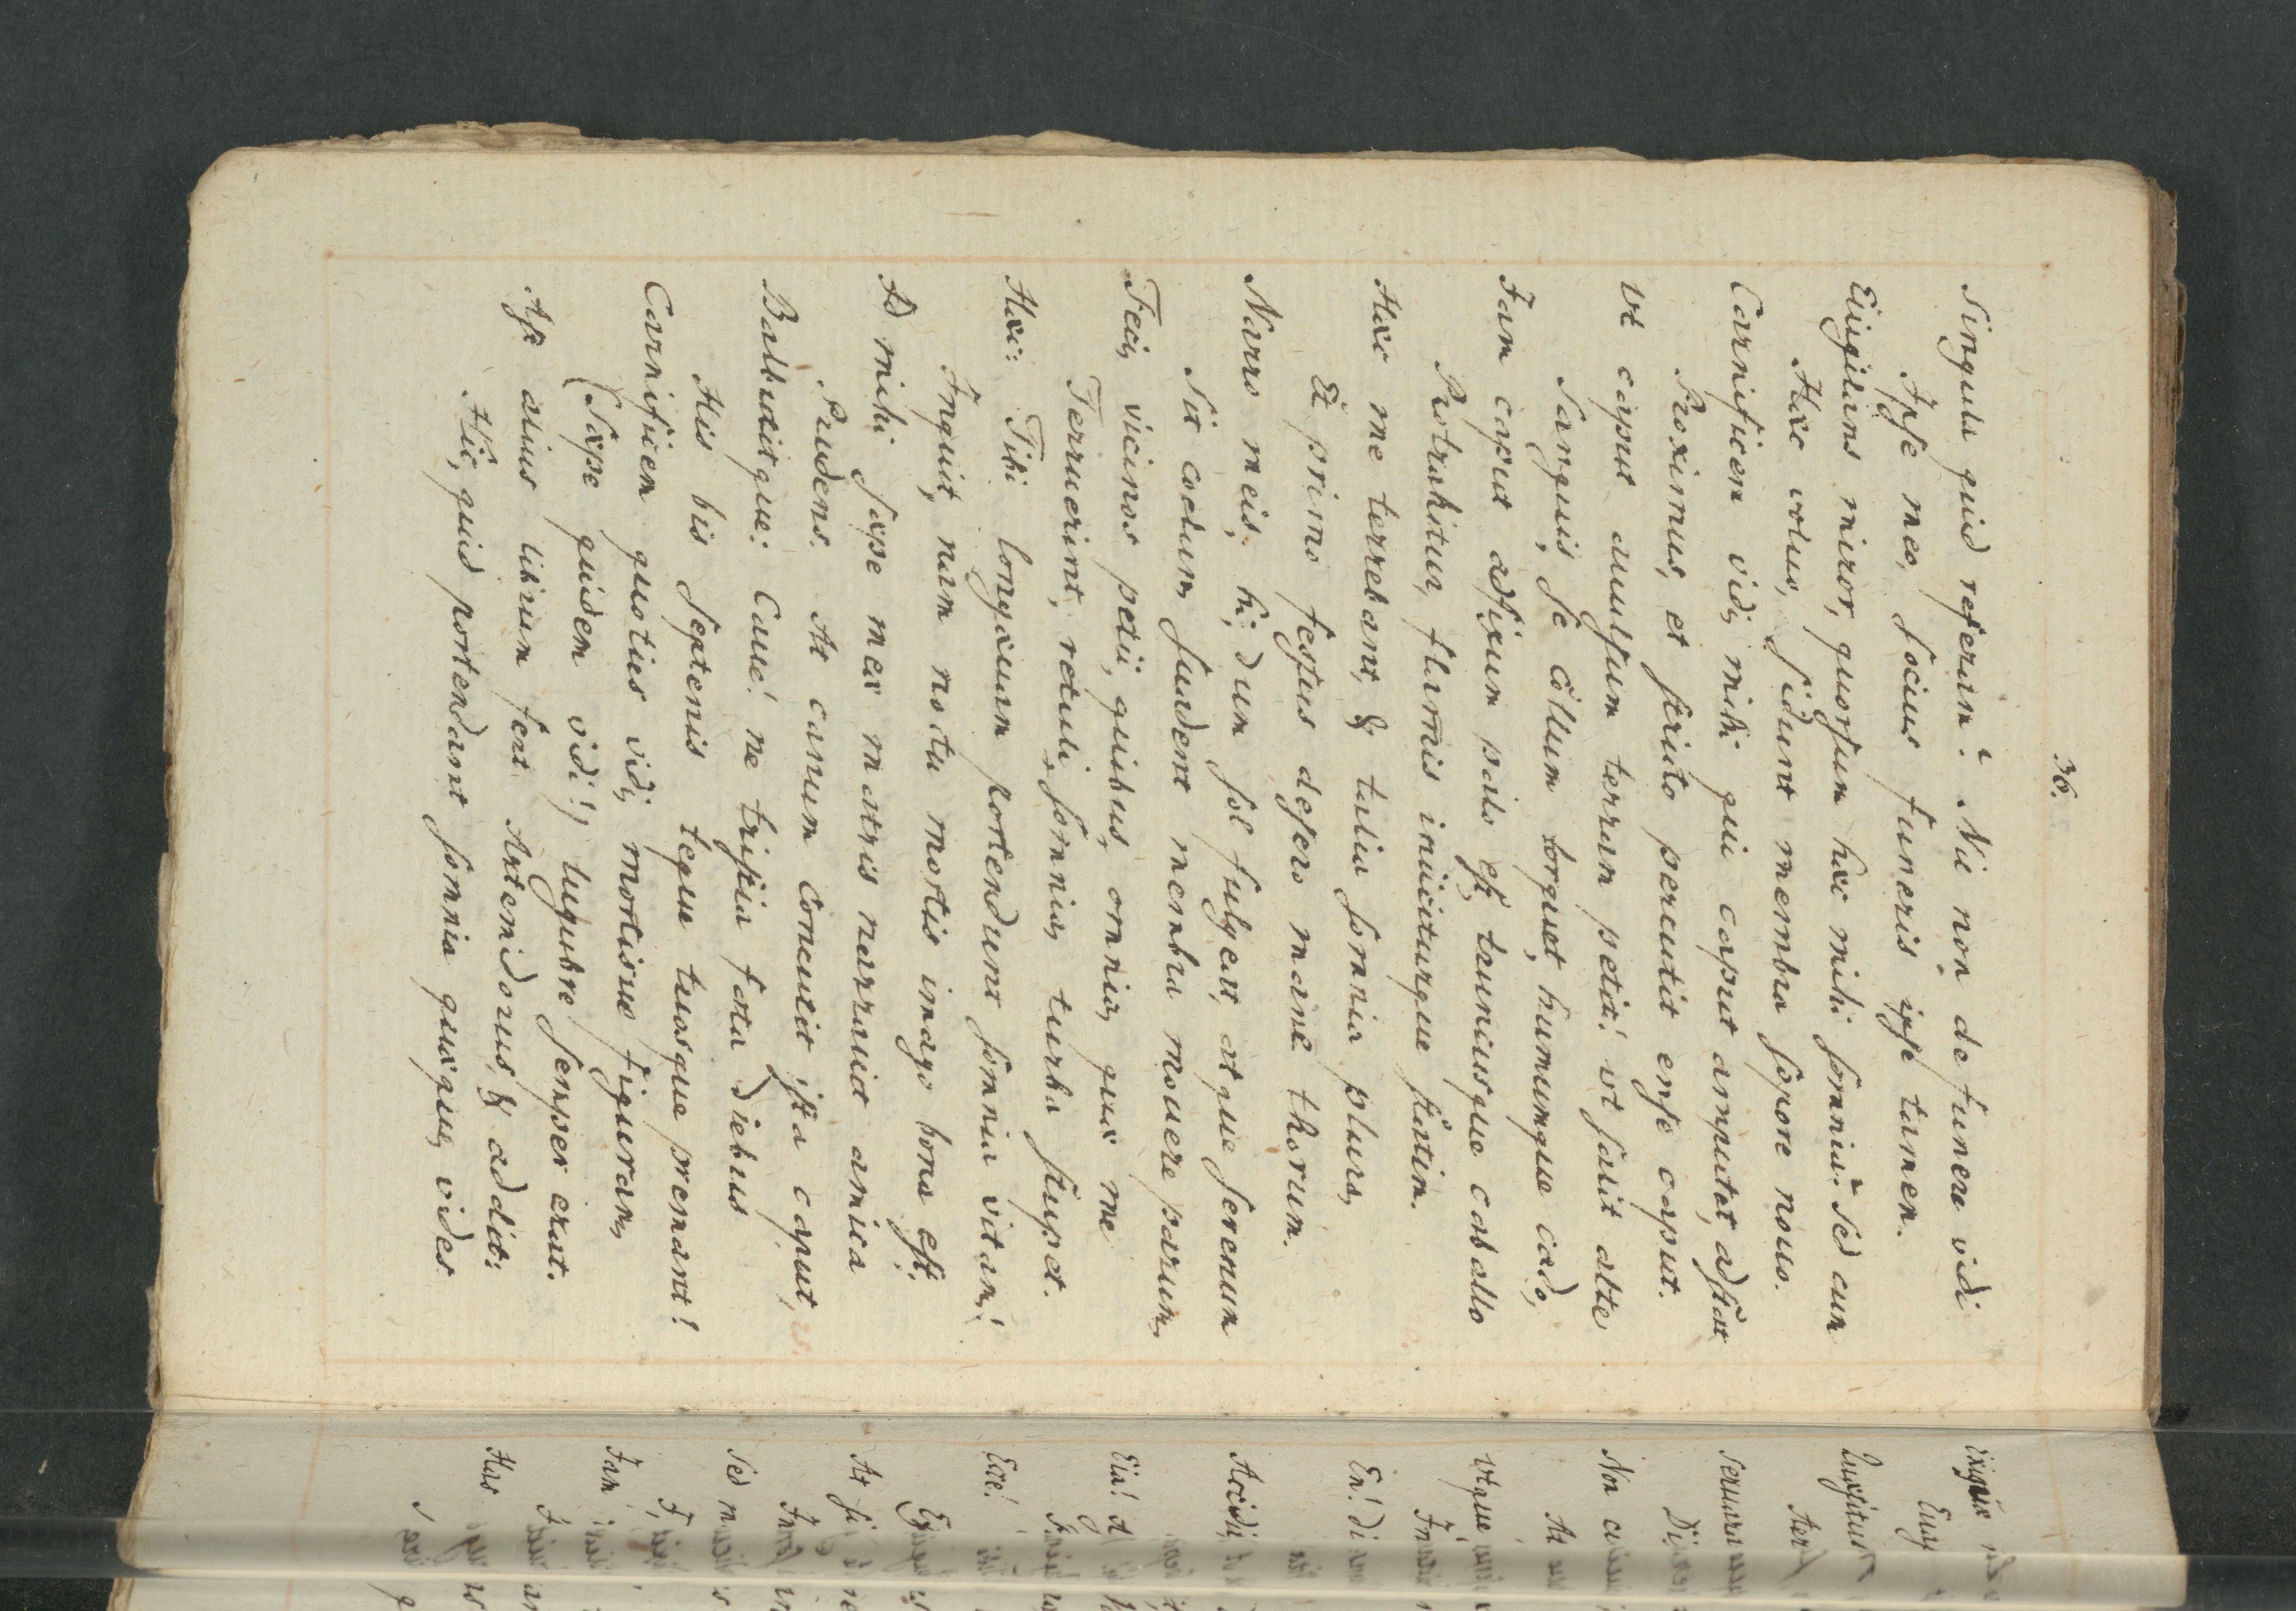 36.
Singula quid referam? Nil non de funere vidi
Ipse meo, socius funeris ipse tamen.
Euigilans miror, quorsum haec mihi somnia? Sed cum
Haec voluo, sidunt membra sopore nouo.
Carnificem vidi, mihi qui caput amputat, adstat
Proximus, et stricto percutit ense caput.
Vt caput auulsum terram petit! vt salit alte
Sanguis, se collum torquet, humumque cado,
Jam caput adfixum palo est, truncusque caballo
Protrahitur, flammis iniiciturque statim.
Haec me terrebant, & talia somnia plura,
Et primo fessus desero mane thorum.
Narro meis, hi, dum sol fulgeat, atque serenum
Sit coelum, suadent membra mouere parum,
Feci, vicinos petii, quibus, omnia, quae me
Terruerint, retuli, somnia, turba stupet.
Haec: Tibi longaeuam portendunt somnia vitam!
Inquit, nam noctu mortis imago bona est.
Id mihi saepe meae matris narrauit amica
Prudens. At canum concutit ista caput,
Balbutitque: Caue! ne tristia fata diebus
His bis septenis teque tuosque premant!
Carnificem quoties vidi, mortisue figuram,
(Saepe quidem vidi!) lugubre semper erat.
Ast alius librum fert Artemidorus, & addit:
Hic, quid portendant somnia quaeque, vides.
Exiguae
Euig
Quaesitus
Aer
Seruara
Di
Non
At
Vtque
In
En! di
Accidi
Eia!
Ecce!
At si
In
Sed m
Jam
Has